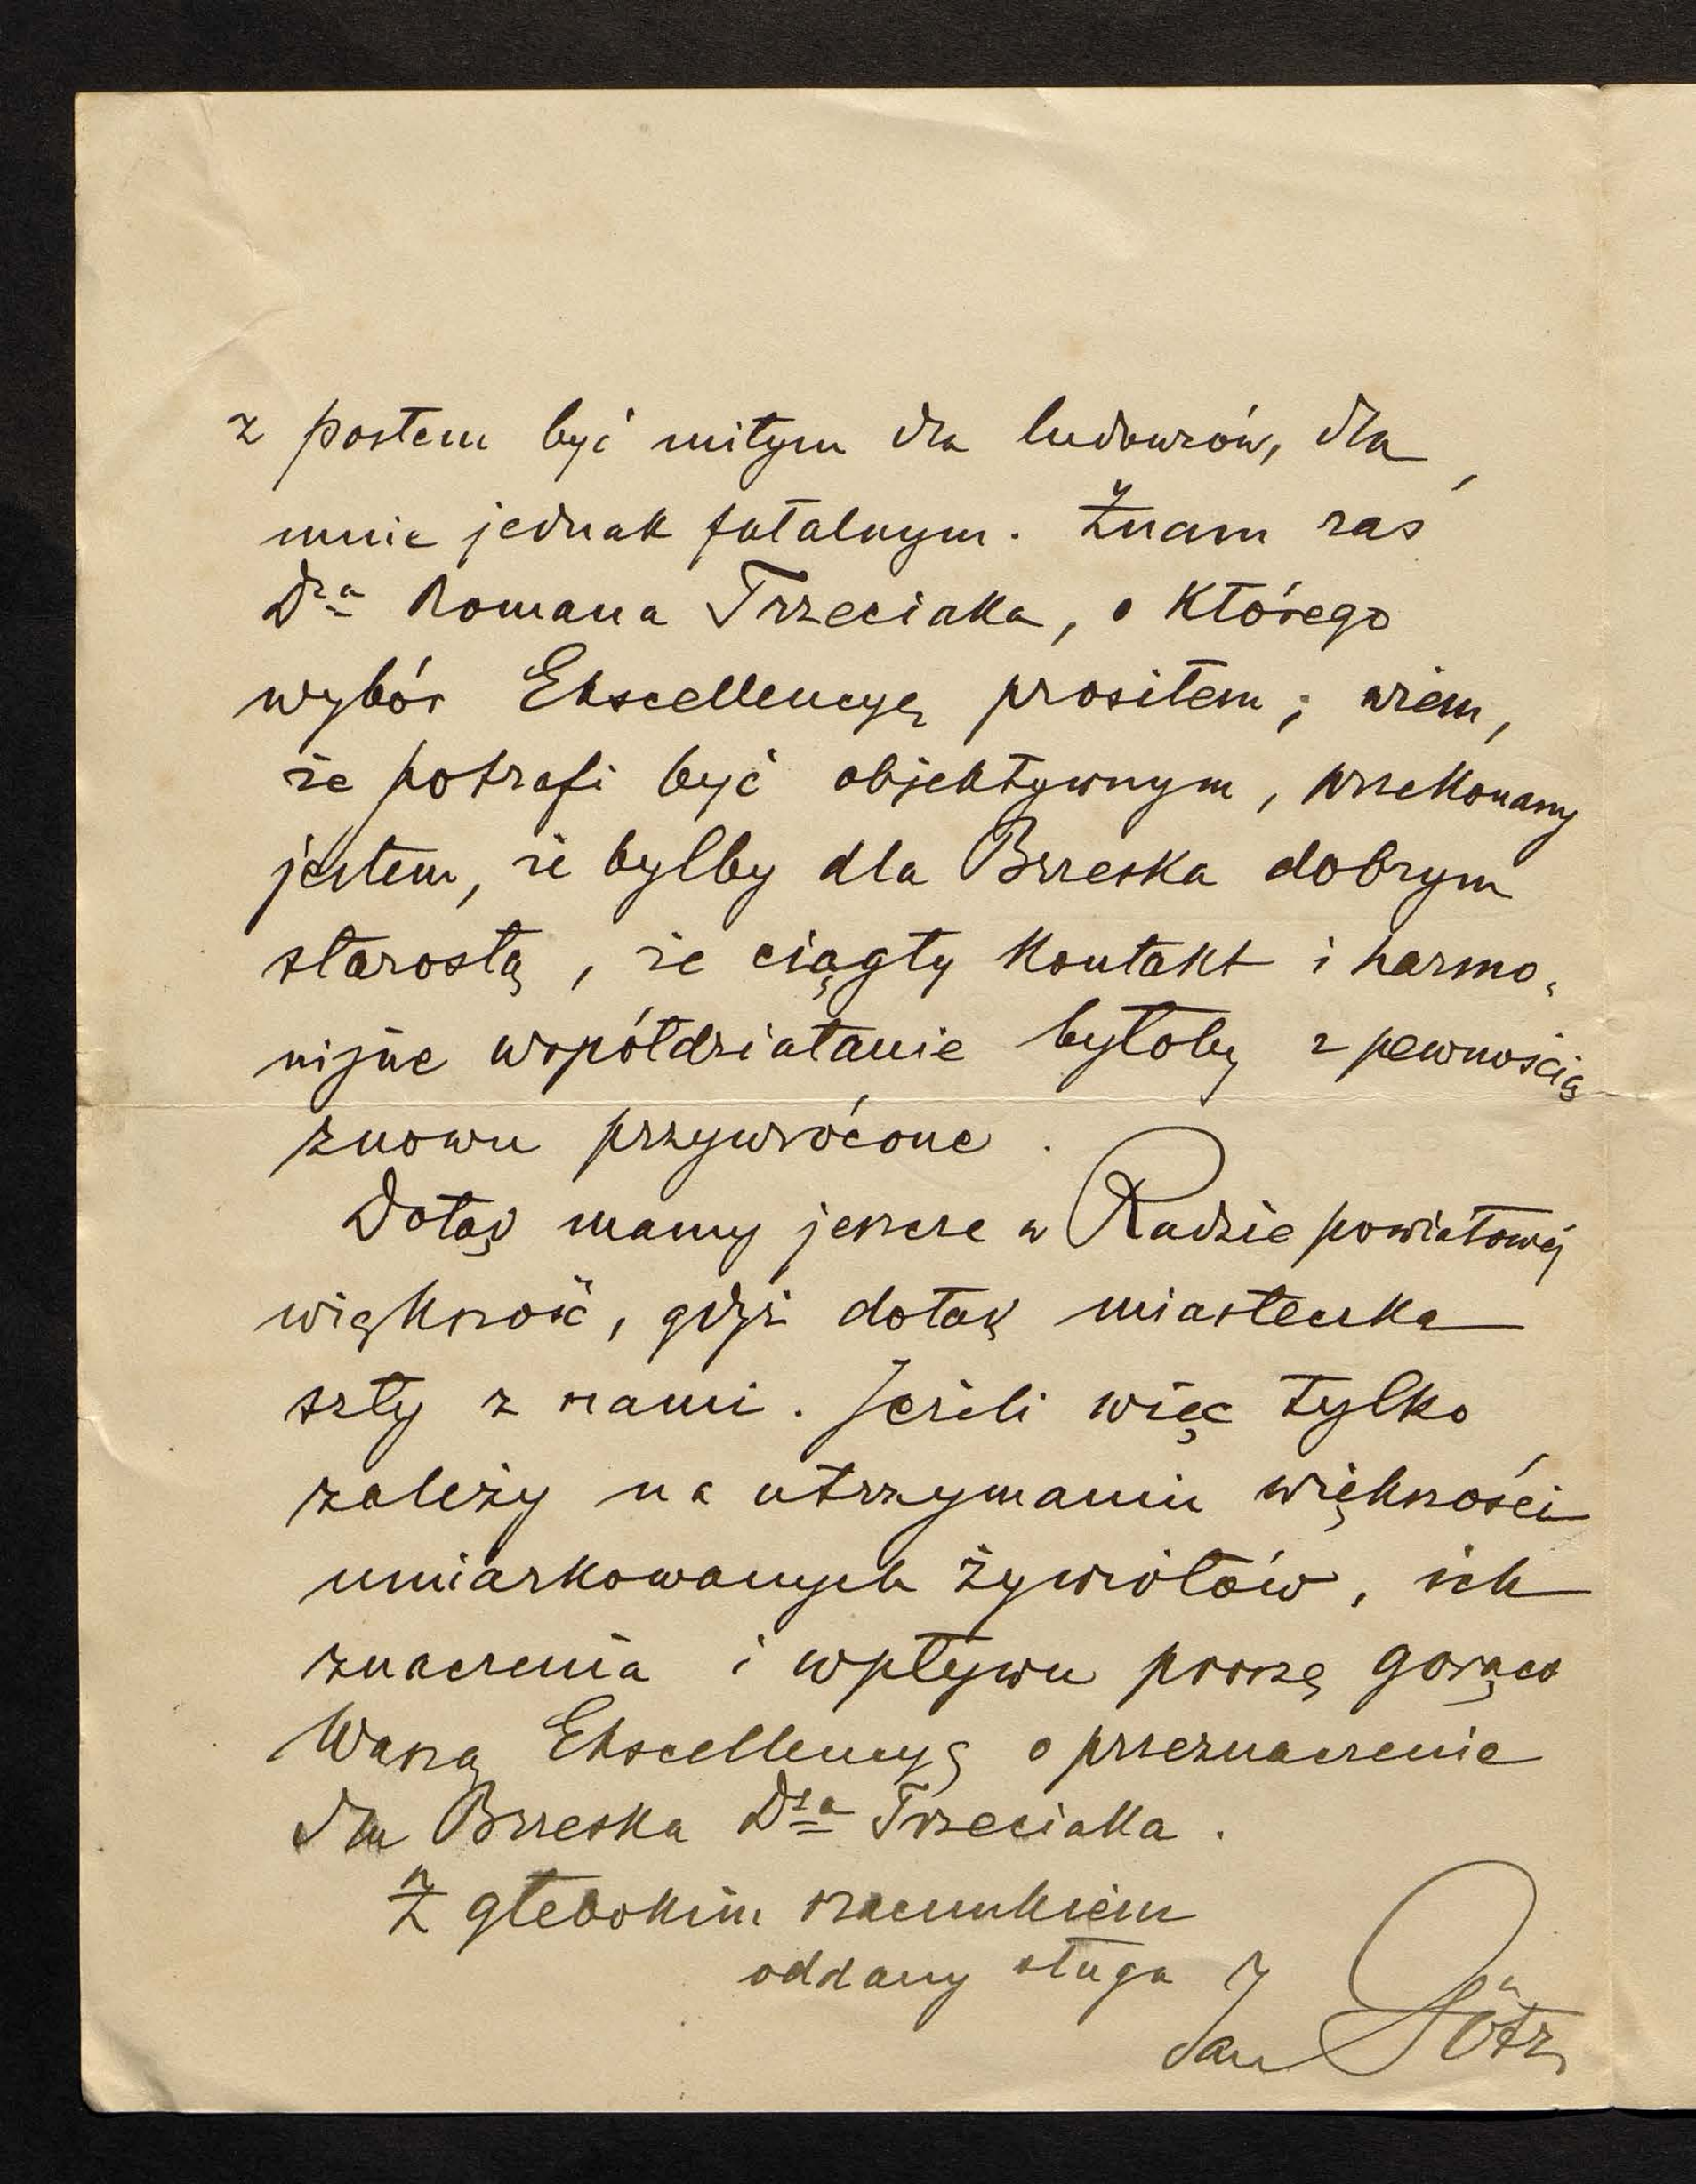 z postem być miłym dla ludowców, dla
mnie jednak fatalnym. Znam zaś
Dra Romana Trzeciaka, o którego
wybór Ekscellencyę prosiłem; wiem,
że potrafi być objektywnym, przekonany
jestem, że byłby dla Brzeska dobrym
starostą, że ciągły kontakt i harmo-
nijne współdziałanie byłoby z pewnością
znowu przywrócone.
Dotąd mamy jeszcze w Radzie powiatowej
większość, gdyż dotąd miasteczka
szły z nami. Jeżeli więc tylko
zależy na utrzymaniu większości
umiarkowanych żywiołów, ich
znaczenia i wpływu proszę gorąco
Waszą Ekscellencyę o przeznaczenie
dla Brzeska Dra Trzeciaka.
Z głebokim szacunkiem
oddany sługa
Jan Götz